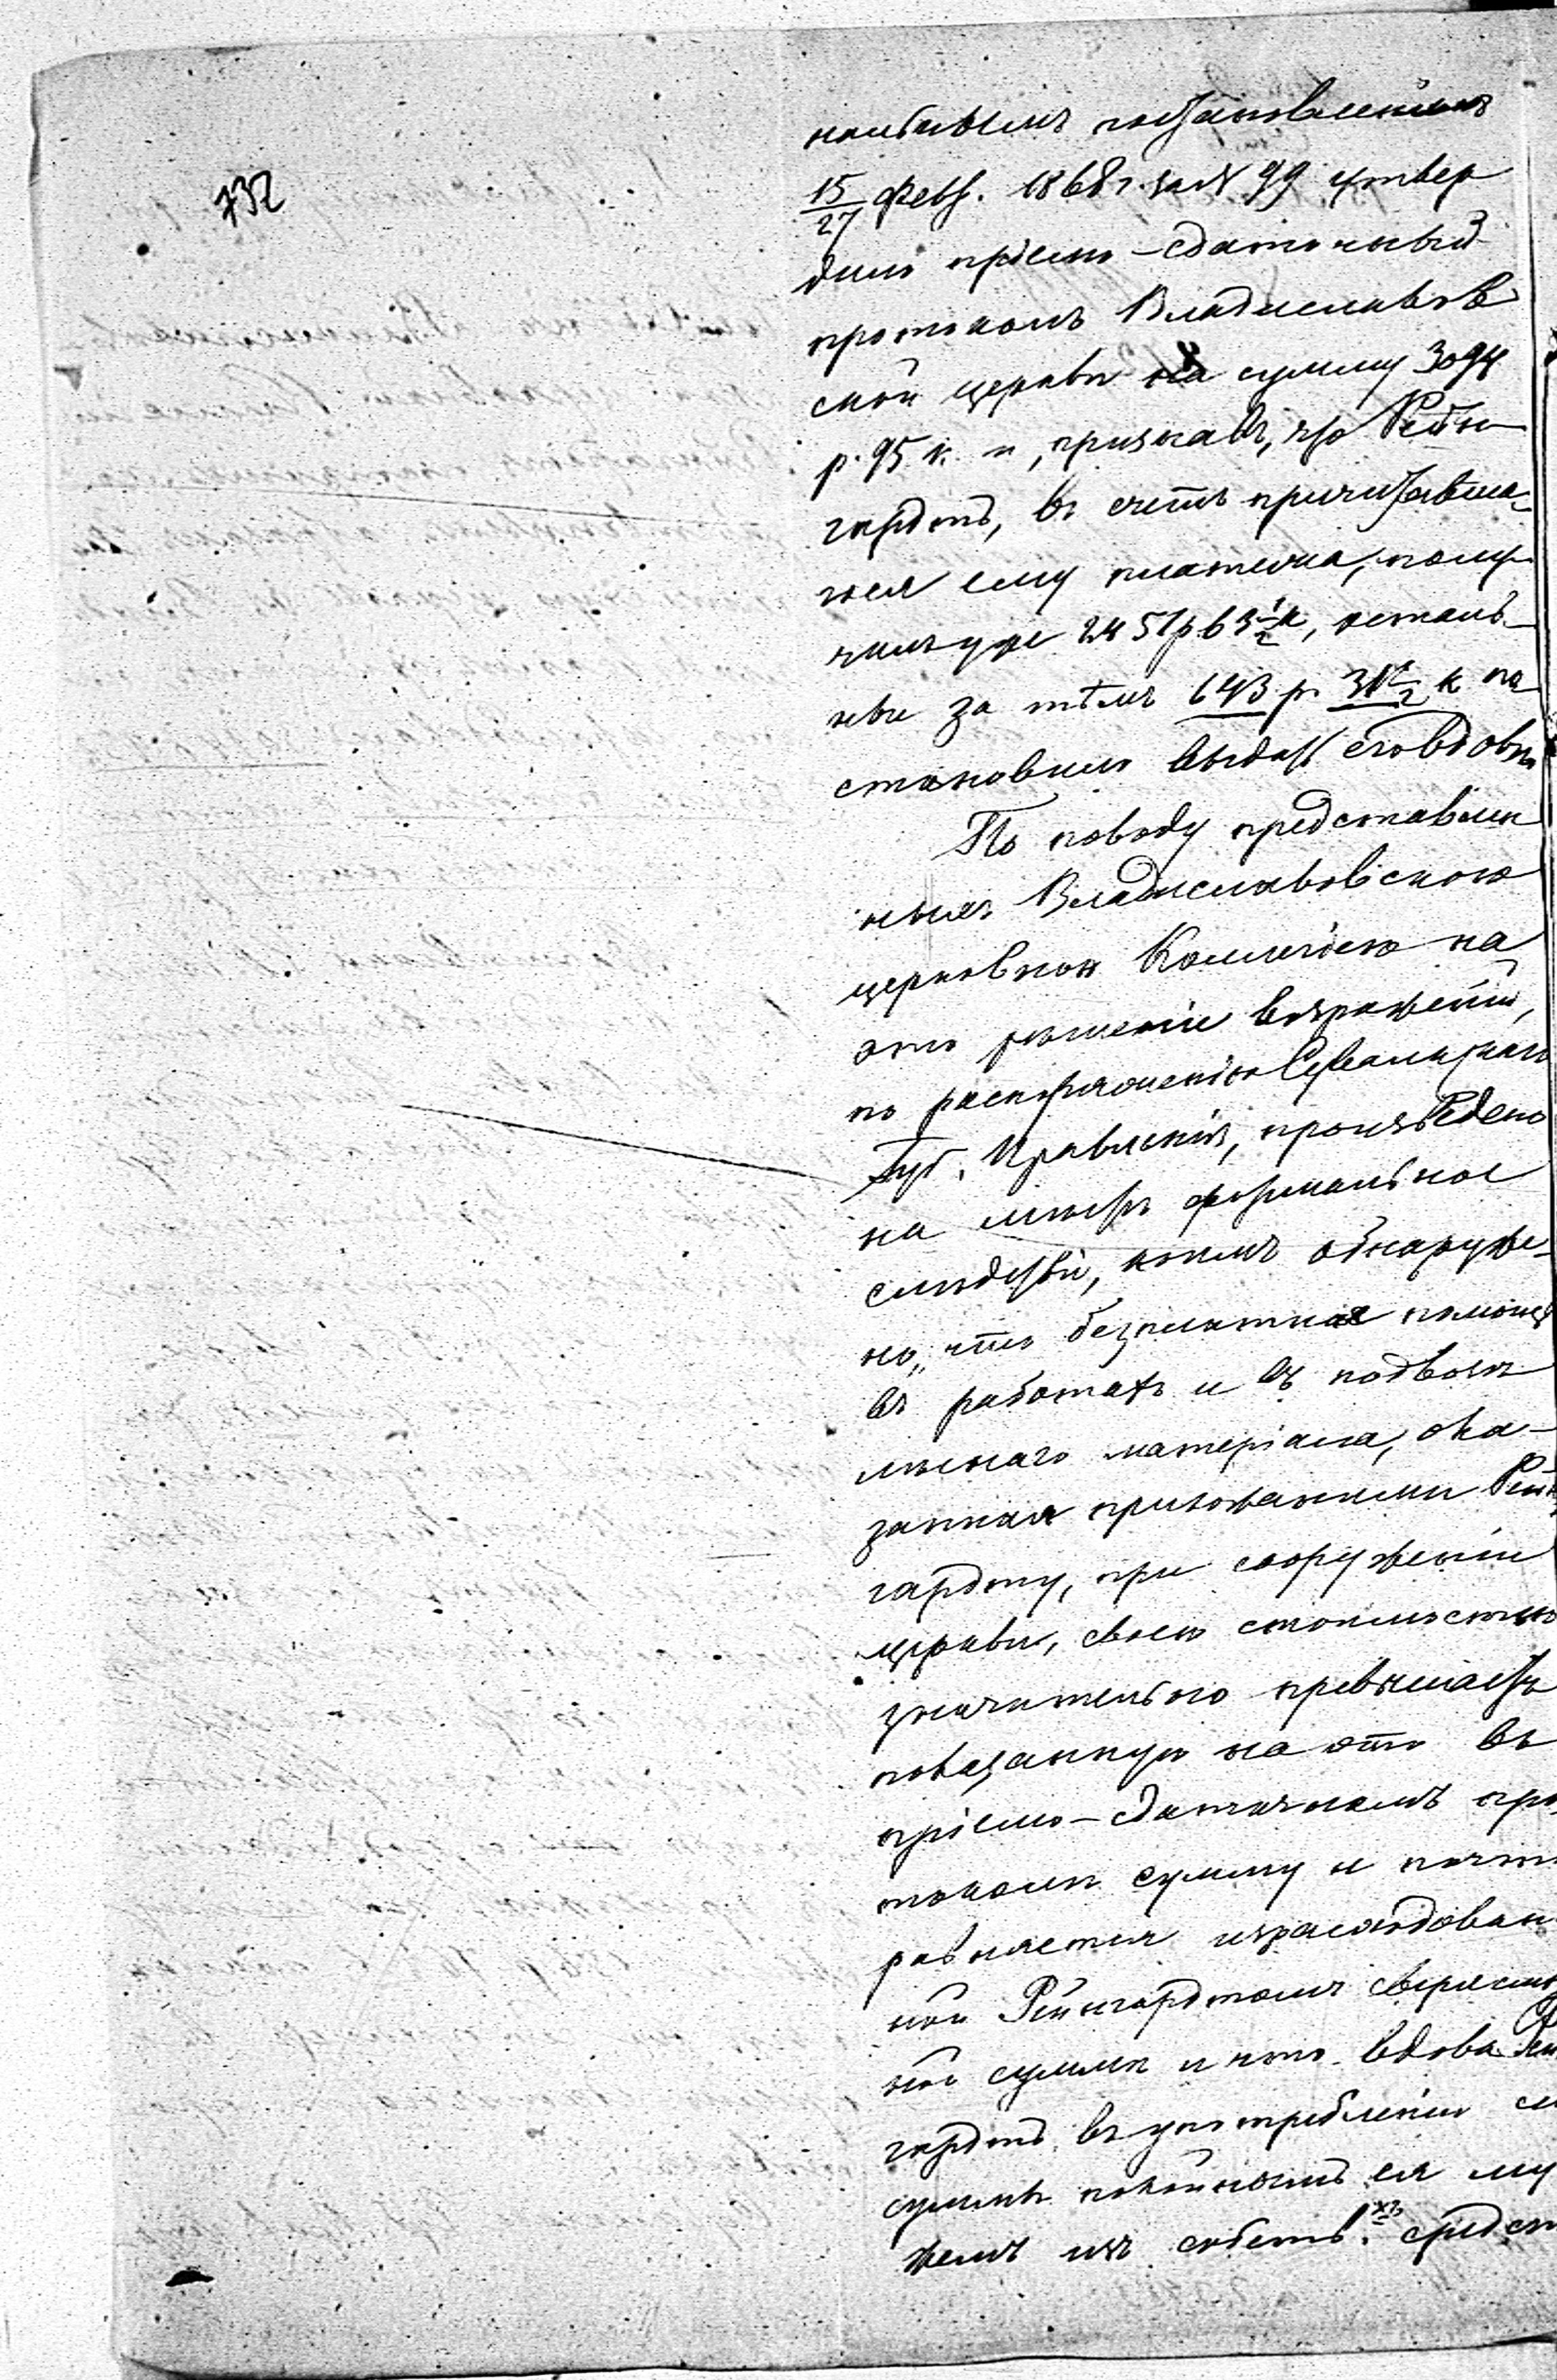 732
постановленіемъ
15/27 Февр. 1868 г. за № 99 утвер
дило пріемо-сдаточный
протоколъ Владиславов
ской церкви на сумму 3094
р. 95 к. и, признавъ, что Рейн
гардтъ, въ счетъ причитавша-
гося ему платежа, полу
чилъ уже 2451 р 63 ½ к, осталь-
ные за тѣмъ 643 р. 31 ½ к по
становило выдать его вдовѣ
По поводу представлен
ныхъ Владиславовскою
церковною Коллегіею на
это рѣшеніе возраженій,
по распоряженію Сувалкскаго
Губ. Правленія, произведено
на мѣстѣ формальное
слѣдствіе, коимъ обнаруже-
но, что безплатная помощь
въ работахъ и въ подвозѣ
лѣснаго матеріала, ока-
занная прихожанами Рейн
гардту, при сооруженіи
церкви, своею стоимостью
значительно превышаетъ
показанную на это въ
пріемо-сдаточномъ про
токолѣ сумму и почти
равняется израсходован
ной Рейнгардтомъ сверхсмѣт
ной суммѣ и что вдова Рейн
гардтъ въ употребленіи
суммъ покойнымъ ея му
жемъ изъ собств.хъ средст